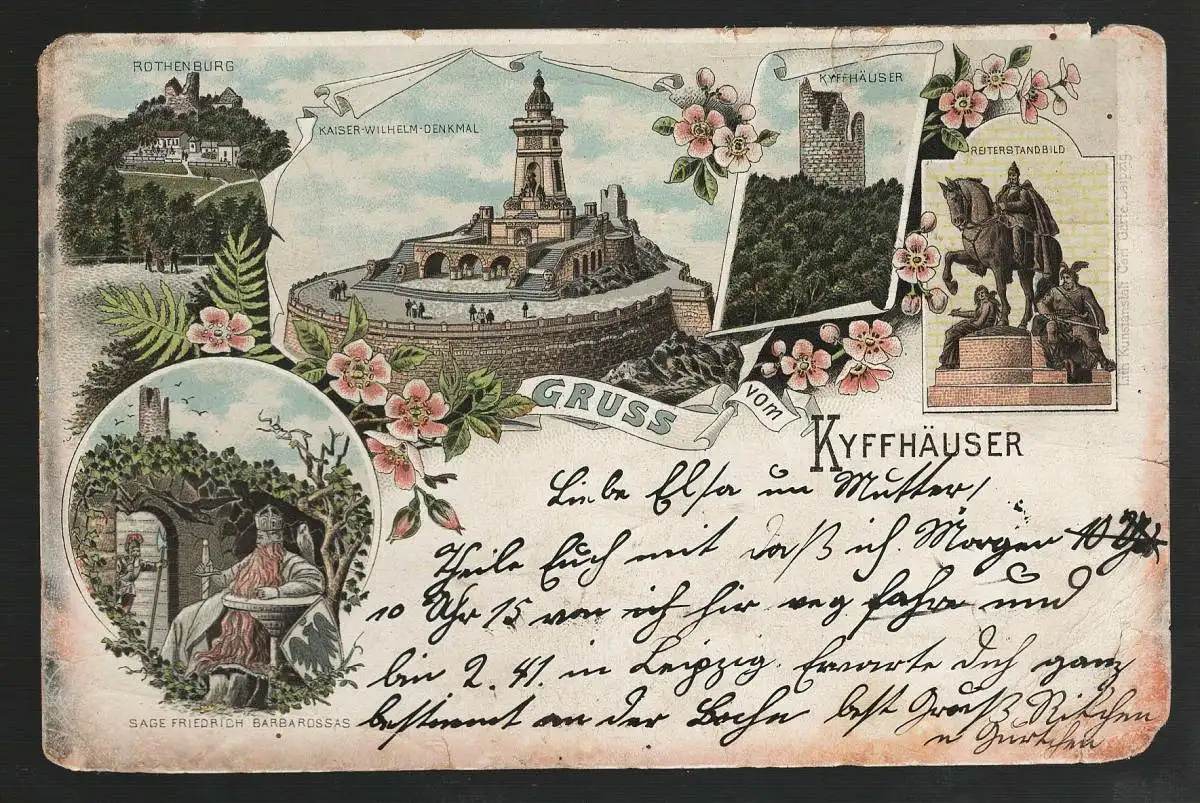 ROTHENBURG
KAISER-WILHELM-DENKMAL
KYFFHÄUSER
REITERSTANDBILD
GRUSS
vom
KYFFHÄUSER
SAGE FRIEDRICH BARBAROSSAS
Liebe Elsa un Mutter!
Theile Euch mit daß ich Morgen
10 Uhr 15 von ich hir weg fahre und
bin 2.41 in Leipzig. Erwarte Dich ganz
bestimmt an der Bahn best Gruß
u
Lith. Kunstanstalt Carl Leipzig